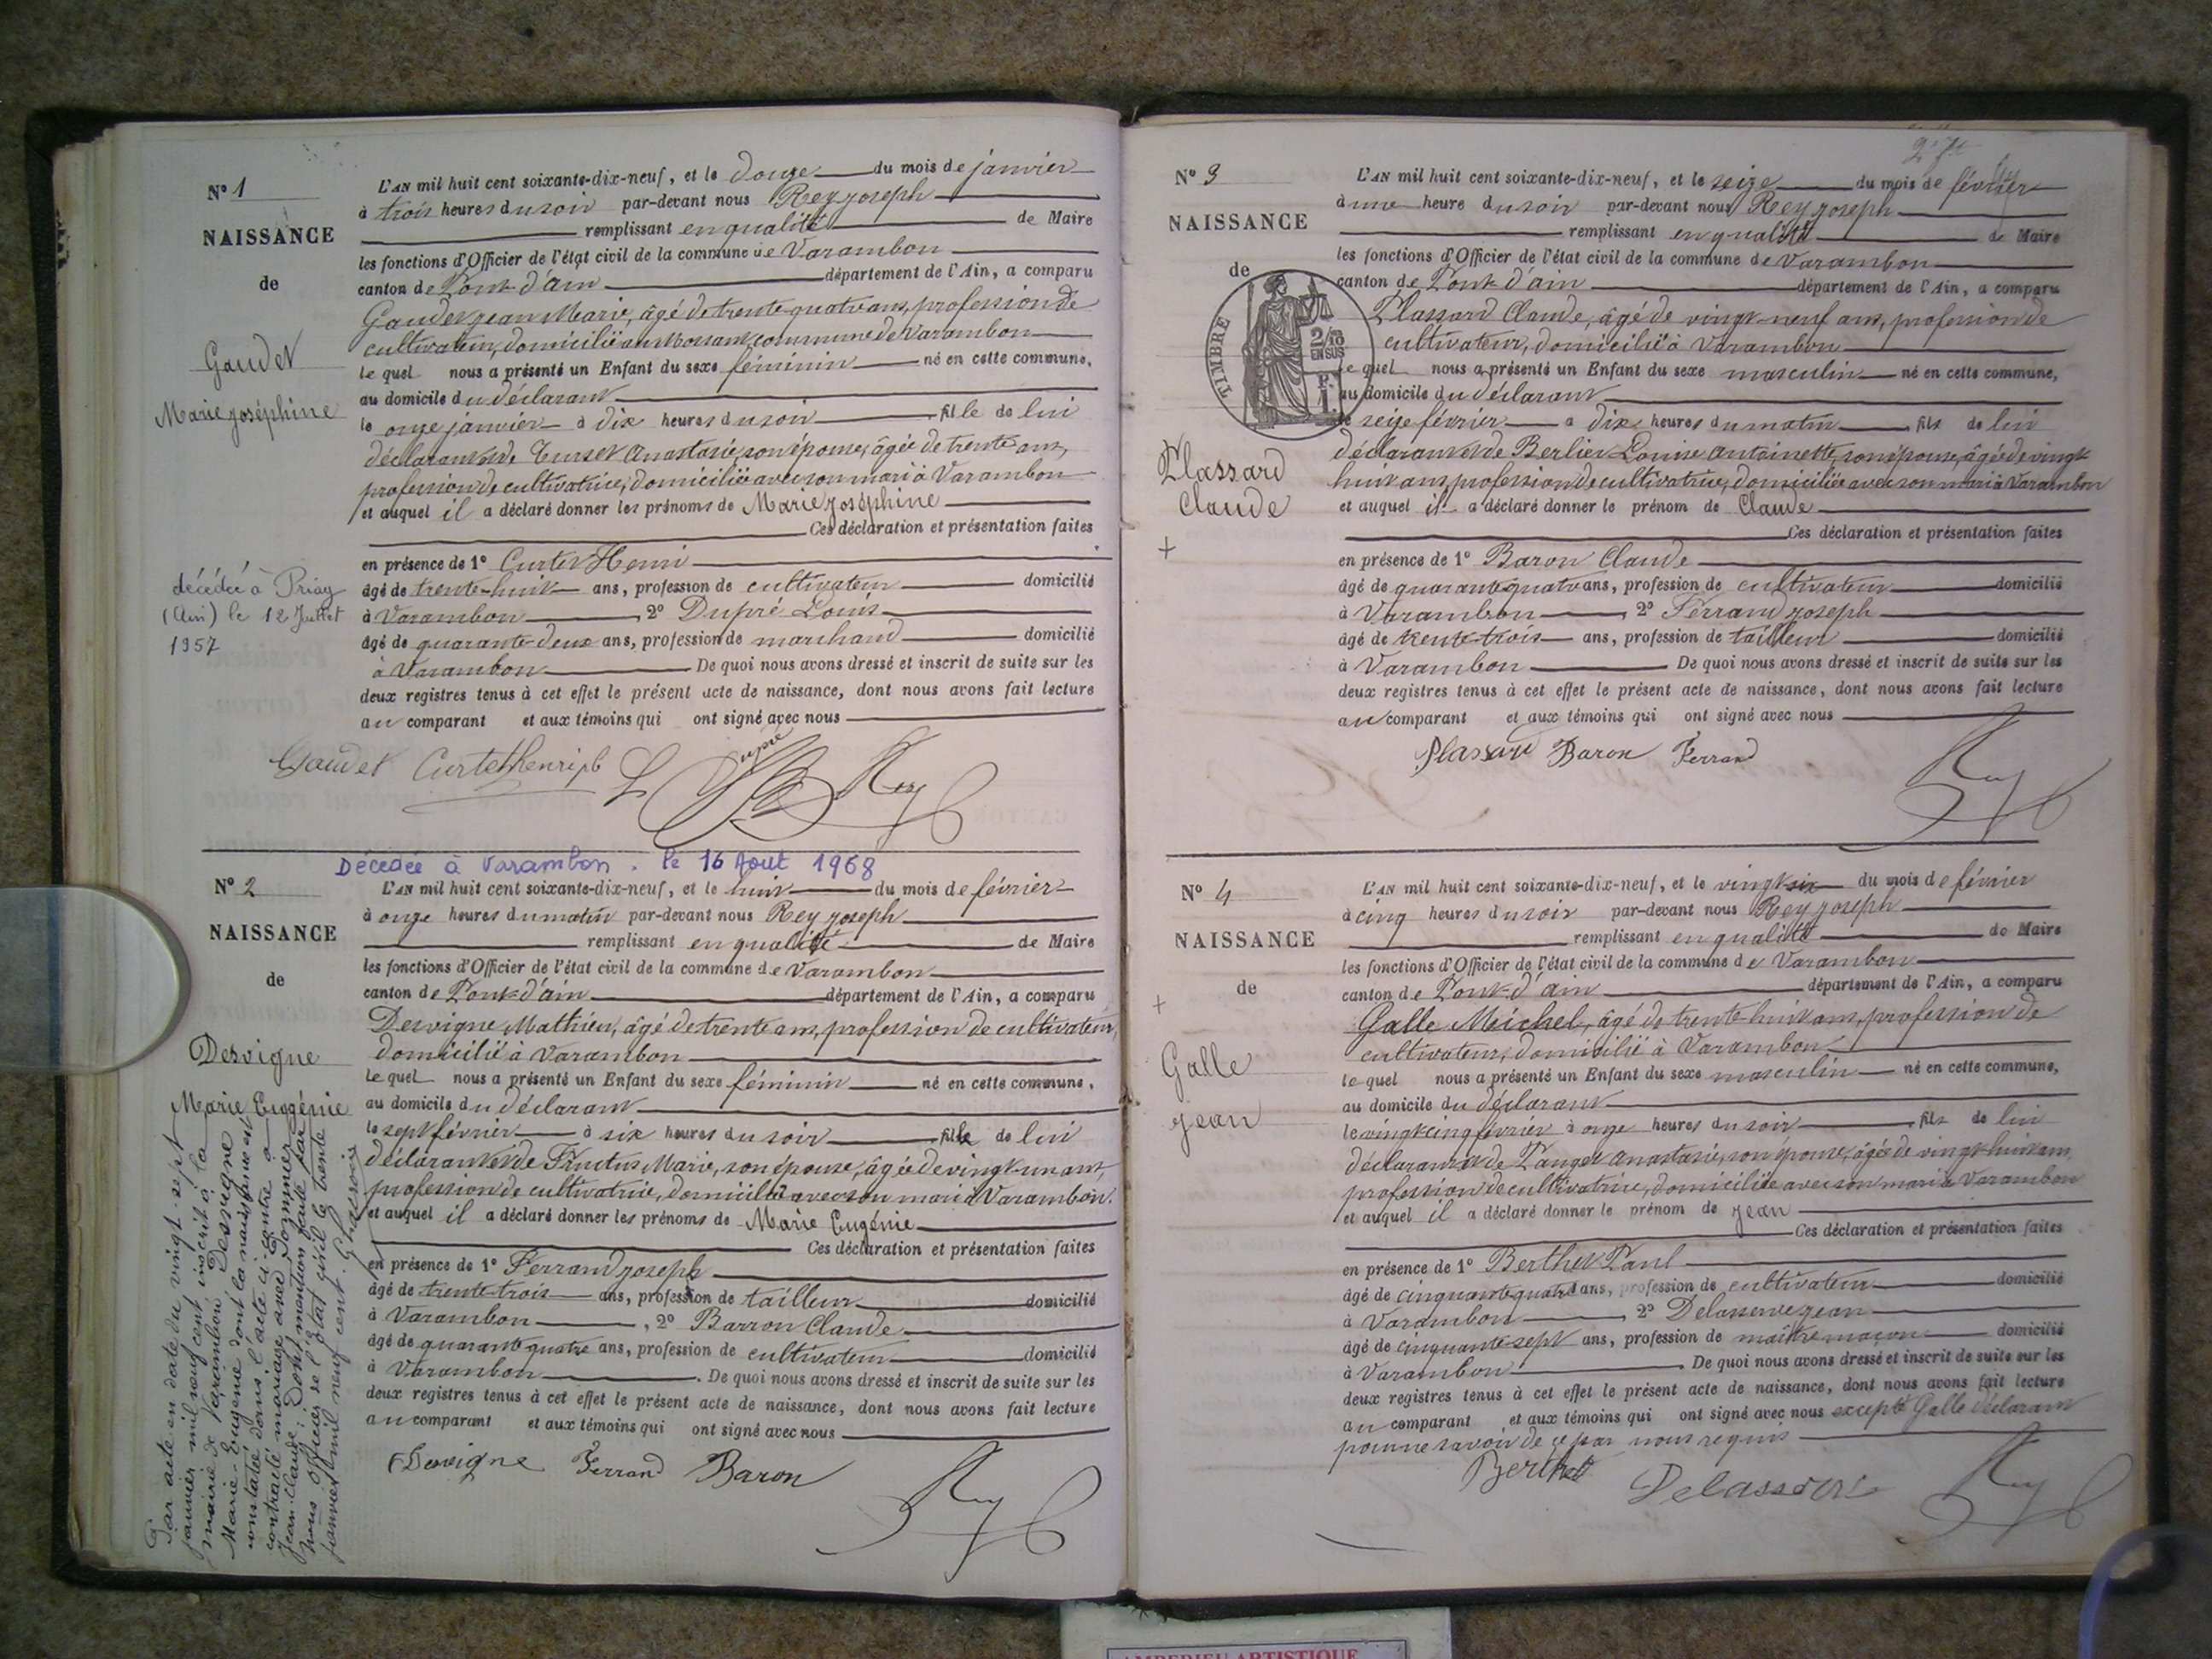 N° 1
NAISSANCE
de
Gaudet
Marie Joséphine
décédée à Priay
(Ain) le 12 Juillet
1957
L'AN mil huit cent soixante-dix-neuf, et le douze du mois de janvier
à trois heures du soir par-devant nous Rey Joseph
remplissant en qualité de Maire
les fonctions d'Officier de l'état civil de la commune de Varambon
canton de Pont d'ain département de l'Ain, a comparu
Gaudet Jean Marie, âgé de trente quatre ans, profession de
cultivateur, domicilié au Mossant commune de Varambon
le quel nous a présenté un Enfant du sexe féminin né en cette commune,
au domicile du déclarant
le onze janvier à dix heures du soir fille de lui
déclarant et de Curset Anastasie, son épouse, âgée de trente ans,
profession de cultivatrice, domiciliée avec son mari à Varambon
et auquel il a déclaré donner les prénoms de Marie Joséphine
Ces déclaration et présentation faites
en présence de 1° Curtet Henri
âgé de trente-huit ans, profession de cultivateur domicilié
à Varambon, 2° Dupré Louis
âgé de quarante-deux ans, profession de marchand domicilié
à Varambon De quoi nous avons dressé et inscrit de suite sur les
deux registres tenus à cet effet le présent acte de naissance, dont nous avons fait lecture
au comparant et aux témoins qui ont signé avec nous
Gaudet Curtet henri L Dupré Rey
Décédée à Varambon. le 16 Aout 1968
N° 2
NAISSANCE
de
Desvigne
Marie Eugénie
Par acte en date du vingt-sept
janvier mil neuf cent, inscrit à la
mairie de Varambon, Desvigne
Marie-Eugénie dont la naissance est
constatée dans l'acte ci-contre a
contracté mariage avec
Jean-Claude; Dont mention faite par
nous Officier de l'état civil le trente
janvier mil neuf cent.
L'AN mil huit cent soixante-dix-neuf, et le huit du mois de février
à onze heures du matin par-devant nous Rey Joseph
remplissant en qualité de Maire
les fonctions d'Officier de l'état civil de la commune de Varambon
canton de Pont-d'ain département de l'Ain, a comparu
Desvigne Mathieu, âgé de trente ans, profession de cultivateur,
domicilié à Varambon
le quel nous a présenté un Enfant du sexe féminin né en cette commune,
au domicile du déclarant
le sept février à six heures du soir fille de lui
déclarant et de Fructus Marie, son épouse, âgée de vingt-un ans,
profession de cultivatrice, domiciliée avec son mari à Varambon.
et auquel il a déclaré donner les prénoms de Marie Eugénie
Ces déclaration et présentation faites
en présence de 1° Ferrand Joseph
âgé de trente-trois ans, profession de tailleur domicilié
à Varambon, 2° Barron Claude
âgé de quarante quatre ans, profession de cultivateur domicilié
à Varambon. De quoi nous avons dressé et inscrit de suite sur les
deux registres tenus à cet effet le présent acte de naissance, dont nous avons fait lecture
au comparant et aux témoins qui ont signé avec nous
Desvigne Ferrand Baron Rey
N° 3
NAISSANCE
de
TIMBRE
2/10
EN SUS
Plassard
Claude
L'AN mil huit cent soixante-dix-neuf, et le seize du mois de février
à une heure du soir par-devant nous Rey Joseph
remplissant en qualité de Maire
les fonctions d'Officier de l'état civil de la commune de Varambon
canton de Pont d'ain département de l'Ain, a comparu
Plassard Claude, âgé de vingt-neuf ans, profession de
cultivateur, domicilié à Varambon
le quel nous a présenté un Enfant du sexe masculin né en cette commune,
au domicile du déclarant
le seize février à dix heures du matin fils de lui
déclarant et de Berlier Louise Antoinette, son épouse, âgée de vingt
huit ans, profession de cultivatrice, domiciliée avec son mari à Varambon
et auquel il a déclaré donner le prénom de Claude
Ces déclaration et présentation faites
en présence de 1° Baron Claude
âgé de quarante quatre ans, profession de cultivateur domicilié
à Varambon, 2° Ferrand Joseph
âgé de trente-trois ans, profession de tailleur domicilié
à Varambon De quoi nous avons dressé et inscrit de suite sur les
deux registres tenus à cet effet le présent acte de naissance, dont nous avons fait lecture
au comparant et aux témoins qui ont signé avec nous
Plassard Baron Ferrand Rey
N° 4
NAISSANCE
de
Galle
Jean
L'AN mil huit cent soixante-dix-neuf, et le vingt-six du mois de février
à cinq heures du soir par-devant nous Rey Joseph
remplissant en qualité de Maire
les fonctions d'Officier de l'état civil de la commune de Varambon
canton de Pont-d'ain département de l'Ain, a comparu
Galle Michel, âgé de trente-huit ans, profession de
cultivateur, domicilié à Varambon
le quel nous a présenté un Enfant du sexe masculin né en cette commune,
au domicile du déclarant
le vingt cinq février à onze heures du soir fils de lui
déclarant et de Pauget Anastasie, son épouse, âgée de vingt-huit ans,
profession de cultivatrice, domiciliée avec son mari à Varambon
et auquel il a déclaré donner le prénom de Jean
Ces déclaration et présentation faites
en présence de 1° Berthet Paul
âgé de cinquante quatre ans, profession de cultivateur domicilié
à Varambon, 2° Delasserve Jean
âgé de cinquante-sept ans, profession de maître maçon domicilié
à Varambon. De quoi nous avons dressé et inscrit de suite sur les
deux registres tenus à cet effet le présent acte de naissance, dont nous avons fait lecture
au comparant et aux témoins qui ont signé avec nous excepté Galle déclarant
pour ne savoir de ce par nous requis
Berthet Delasserve Rey
AMBERIEU ARTISTIQUE